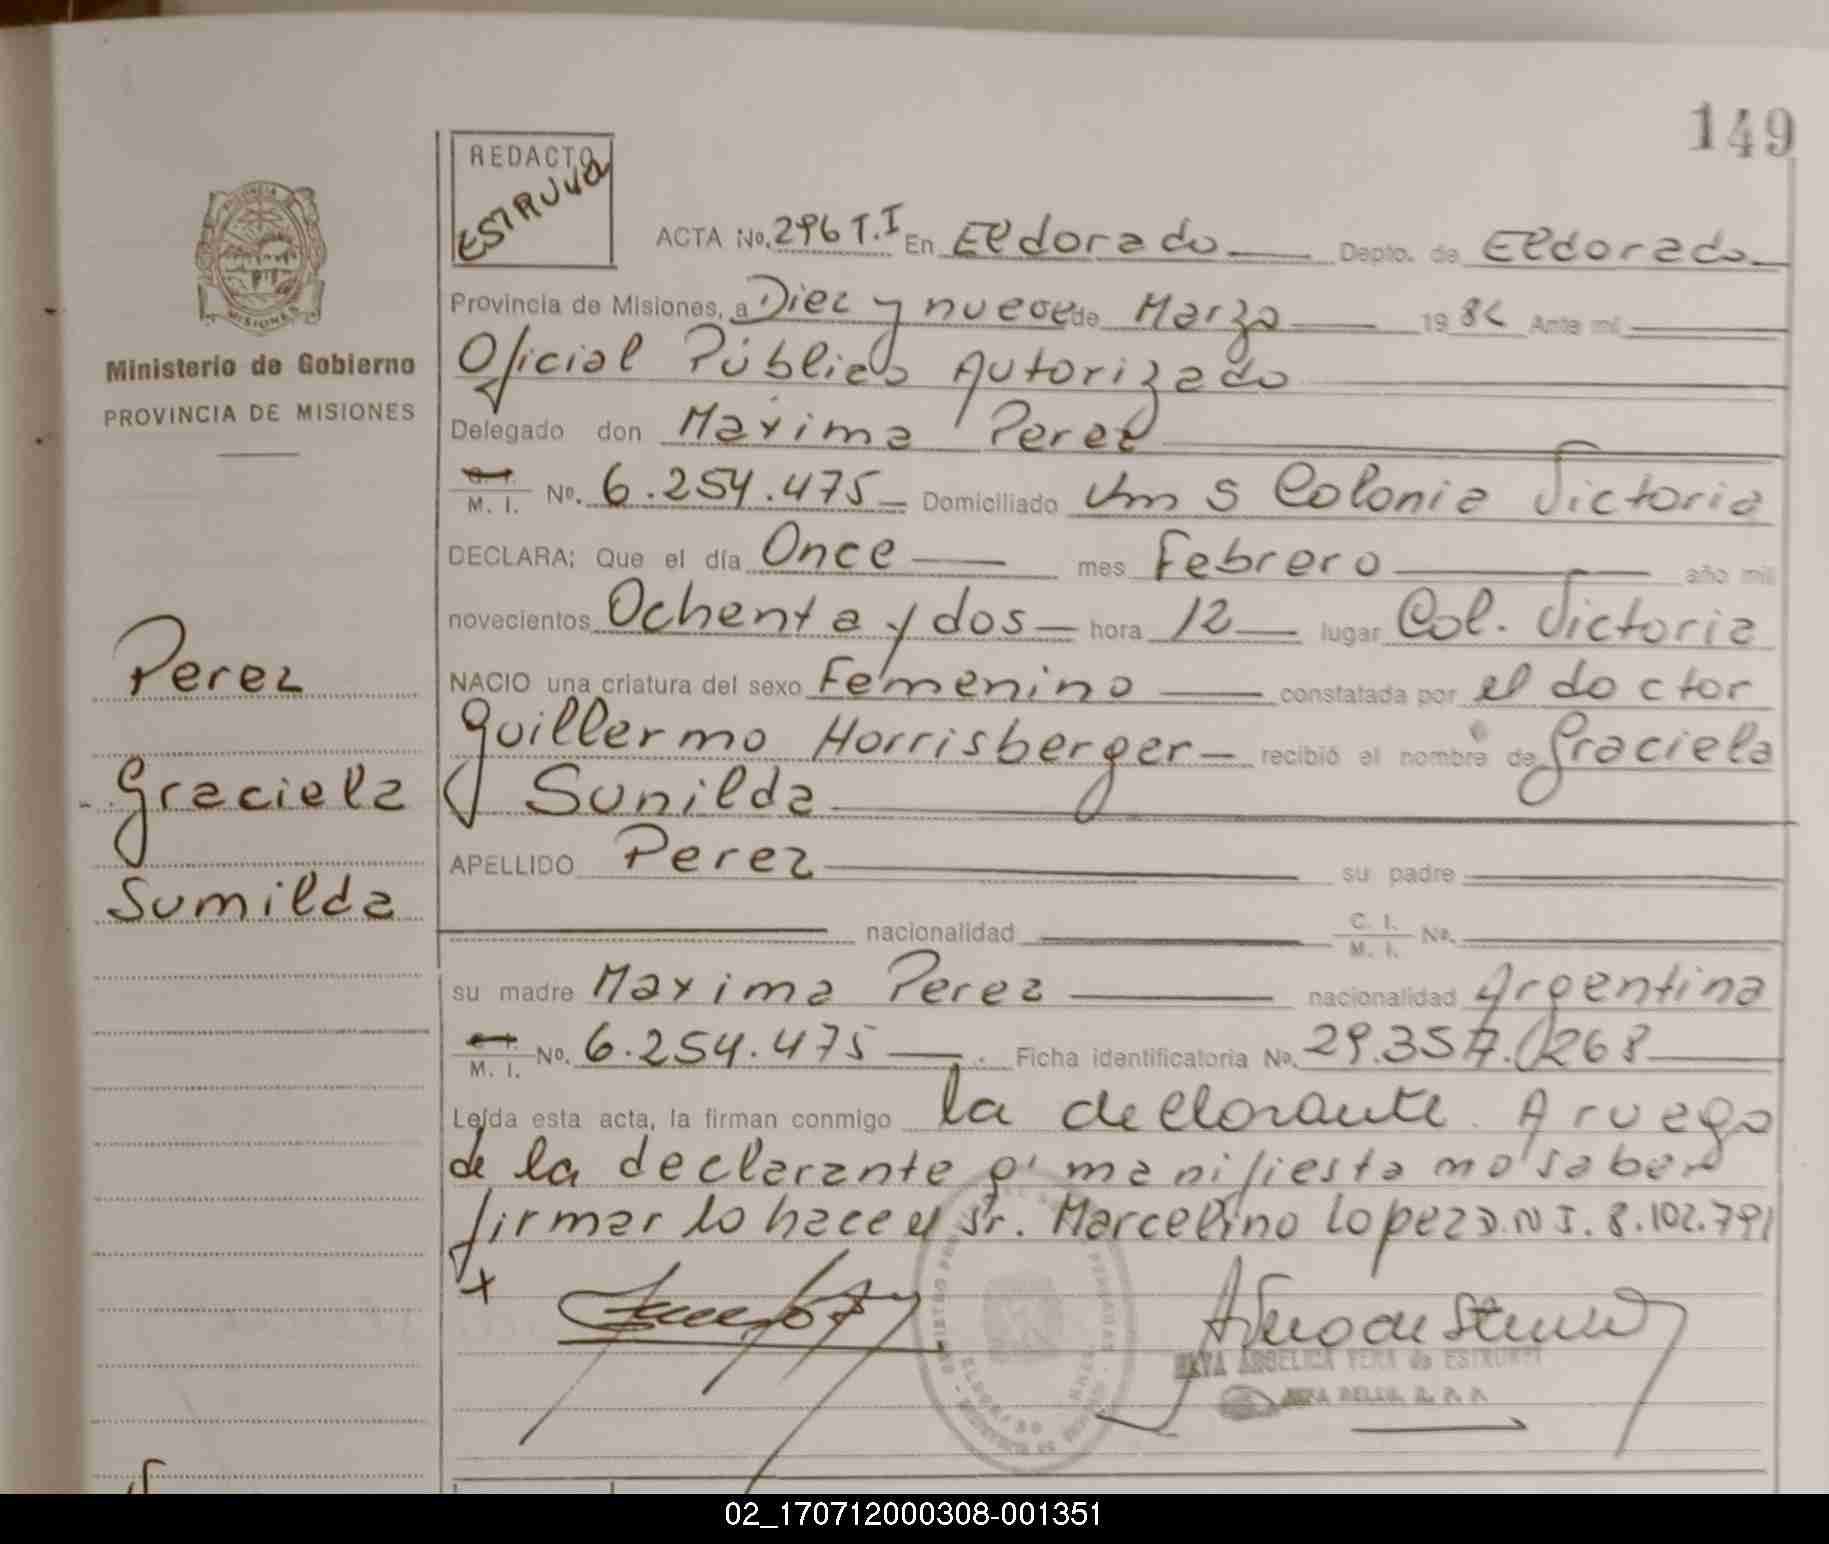 149
REDACTO
ESTRUVA
ACTA No. 296 T.I En Eldorado Depto. de Eldorado
Provincia de Misiones, a Diez y nueve de Marzo 19 86 Ante mí
Oficial Público Autorizado
Ministerio de Gobierno
PROVINCIA DE MISIONES
Delegado don Maxima Perez
M. I. No. 6.254.475 Domiciliado Km 5 Colonia Victoria
DECLARA; Que el día Once mes Febrero año mil
novecientos Ochenta y dos hora 12 lugar Col. Victoria
Perez
NACIO una criatura del sexo Femenino constatada por el doctor
Guillermo Horrisberger recibió el nombre de Graciela
Graciela
Sunilda
APELLIDO Perez su padre
Sumilda
nacionalidad C. I. M. I. No.
su madre Maxima Perez nacionalidad Argentina
M. I. No. 6.254.475 Ficha identificatoria No. 29.357.268
Leída esta acta, la firman conmigo la declorante. A ruego
de la declarante q' manifiesta no saber
firmar lo hace el Sr. Marcelino Lopez D.N I. 8.102.791
ANGELICA VERA de
02_170712000308-001351